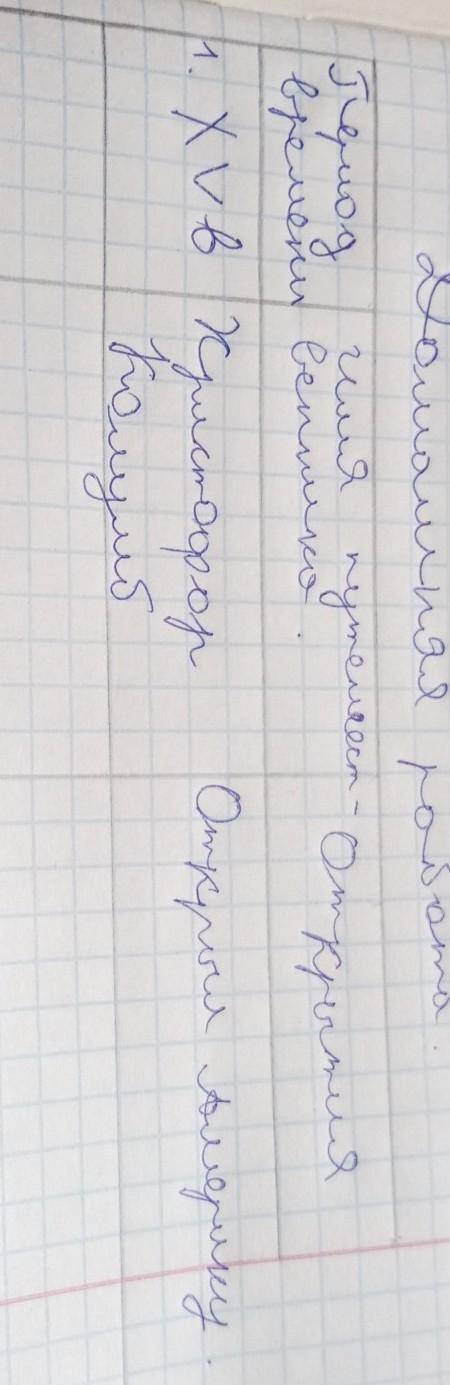 Домашняя работа.
Период времени
Имя путешест-
венника.
Открытия
1. XV в
Христофор
Колумб
Открыл Америку.